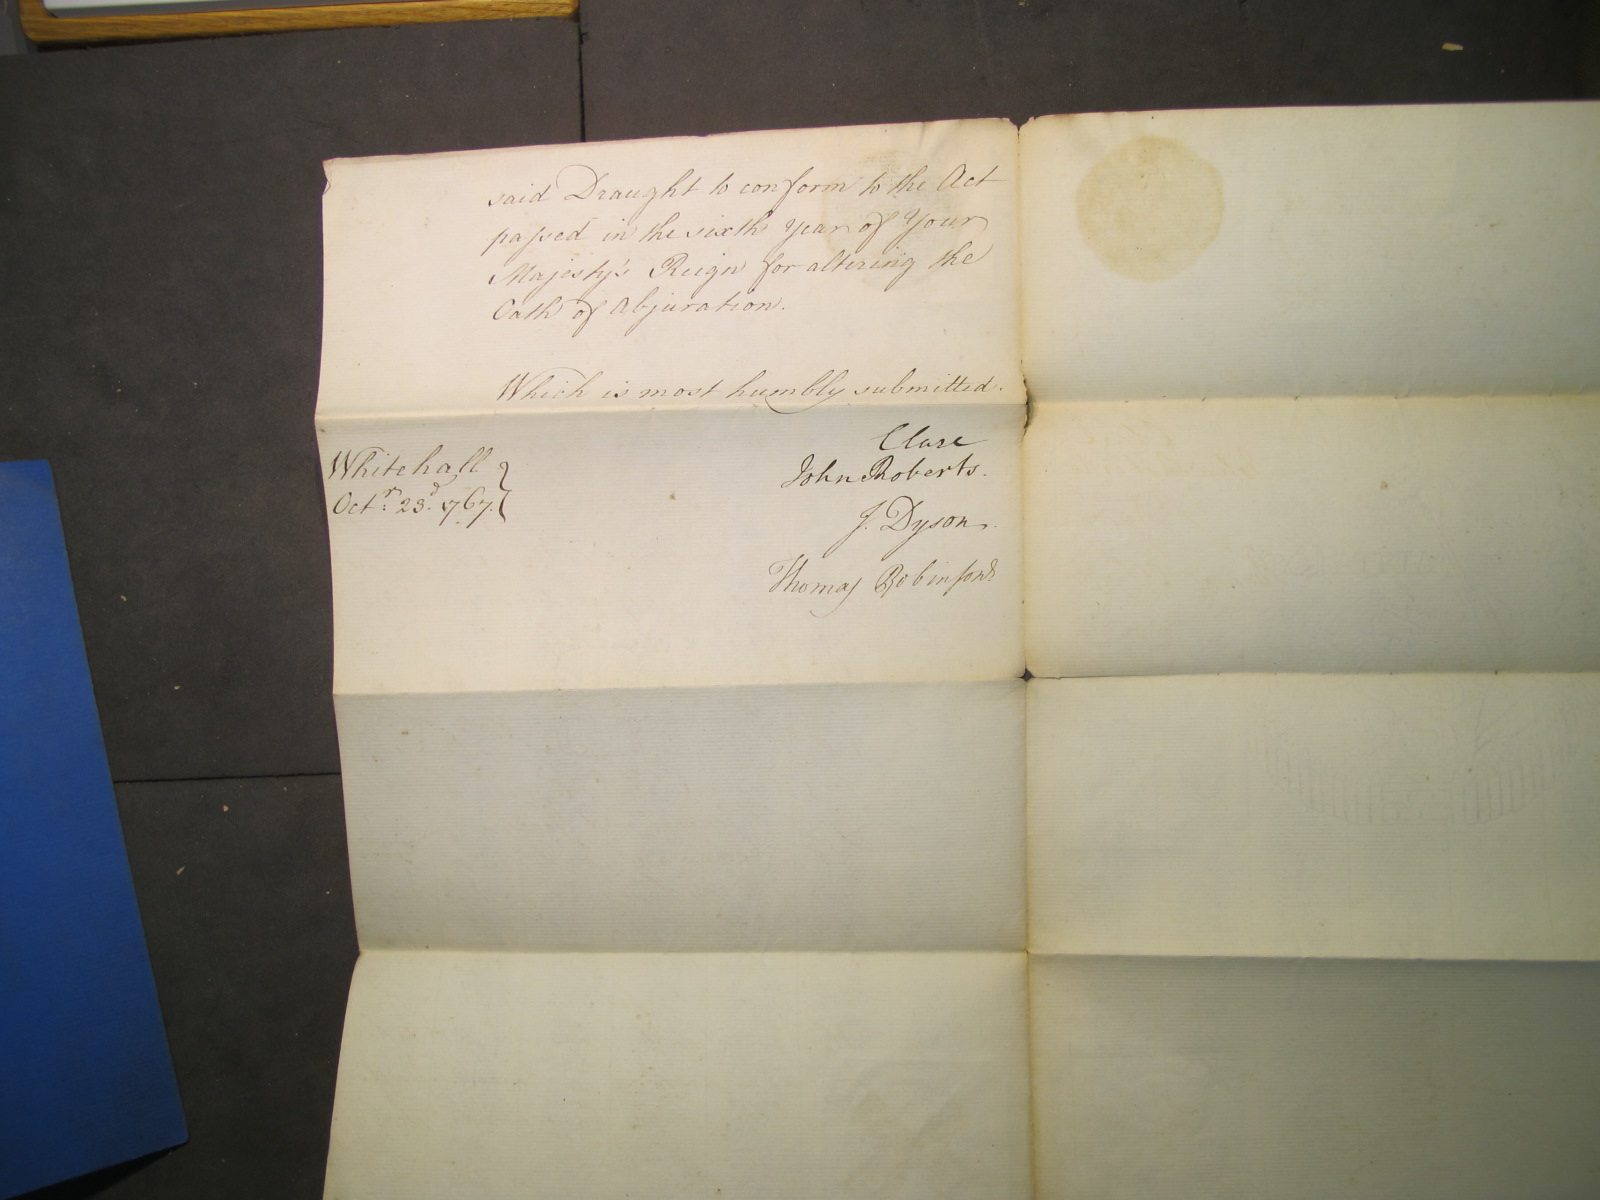 said Draught to conform to the Act
passed in the sixth Year of Your
Majesty's Reign for altering the
Oath of Abjuration.
Which is most humbly submitted.
Clare
John Roberts.
J. Dyson.
Thomas Robinson
Whitehall
Octr. 23d. 1767.